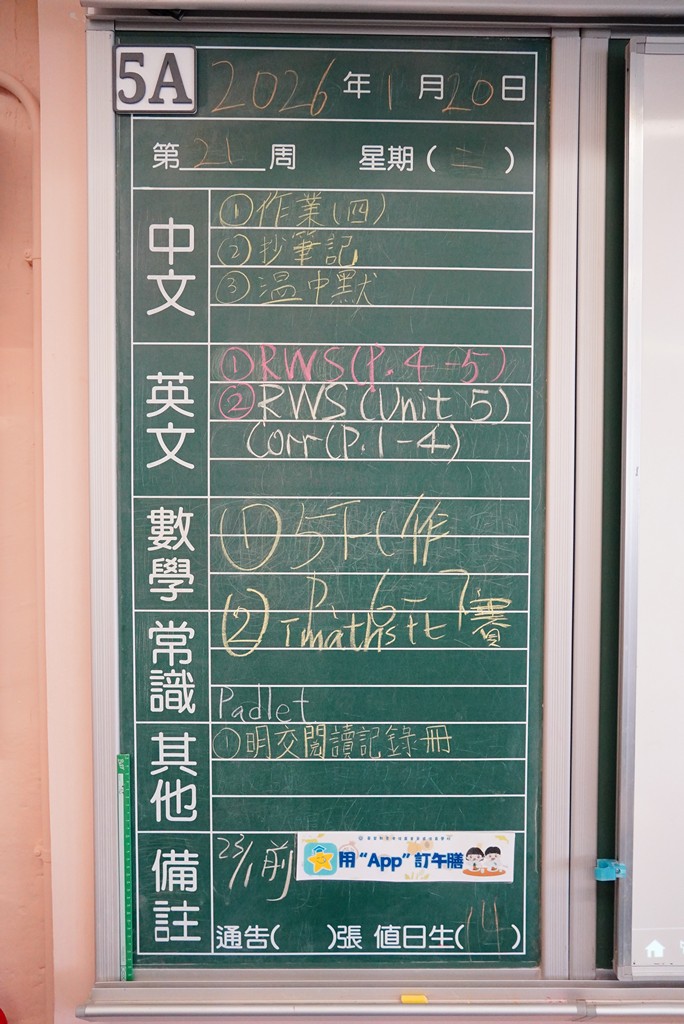 5A 2026年1月20日
第21周 星期(二)
中文
①作業(四)
②抄筆記
③溫中默
英文
①RWS(P.4-5)
②RWS(Unit 5)
Corr(P.1-4)
數學
①5下(作
P.6-7
②Tmaths比賽
常識
Padlet
其他
①明交閱讀記錄冊
備註
23/1前
用“App”訂午膳
通告( )張 值日生(14)